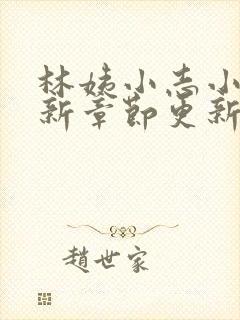 林姨小志小
新章節更新
趙世家